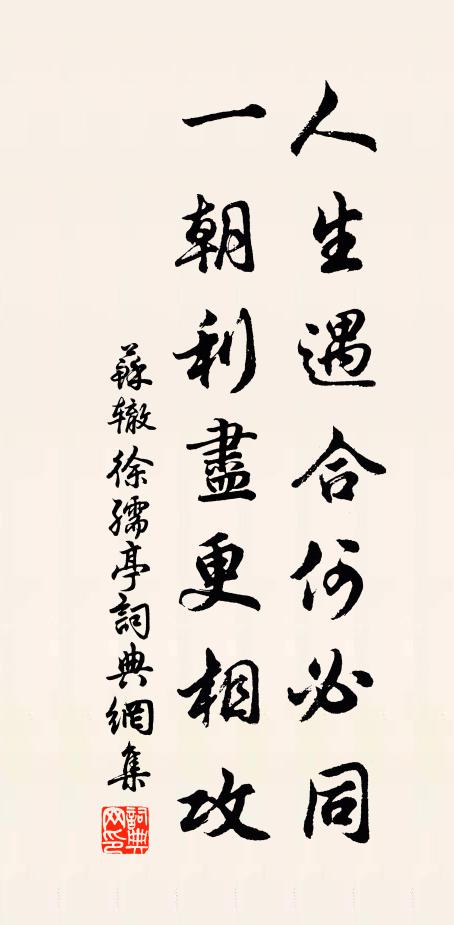 人生遇合何必同
一朝利盡更相攻
蘇轍徐孺亭詞典網集
詞典網印